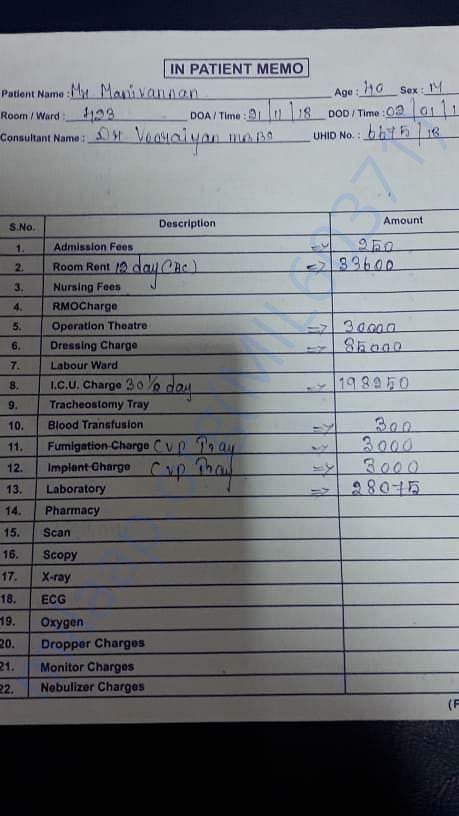 IN PATIENT MEMO
Patient Name : Mr Manivannan Age : 40 Sex : M
Room / Ward : 423 DOA / Time : 21 | 11 | 18 DOD / Time : 02 | 01 | 1
Consultant Name : DR Veeraiyan MBBS UHID No. : 6675 / 18
S.No. Description Amount
1. Admission Fees => 250
2. Room Rent 12 day (AC) => 33600
3. Nursing Fees
4. RMOCharge
5. Operation Theatre => 30000
6. Dressing Charge => 85000
7. Labour Ward
8. I.C.U. Charge 30 1/2 day => 198250
9. Tracheostomy Tray
10. Blood Transfusion => 300
11. Fumigation Charge CVP Tray => 3000
12. Implant Charge CVP Tray => 3000
13. Laboratory => 28075
14. Pharmacy
15. Scan
16. Scopy
17. X-ray
18. ECG
19. Oxygen
20. Dropper Charges
21. Monitor Charges
22. Nebulizer Charges
(P